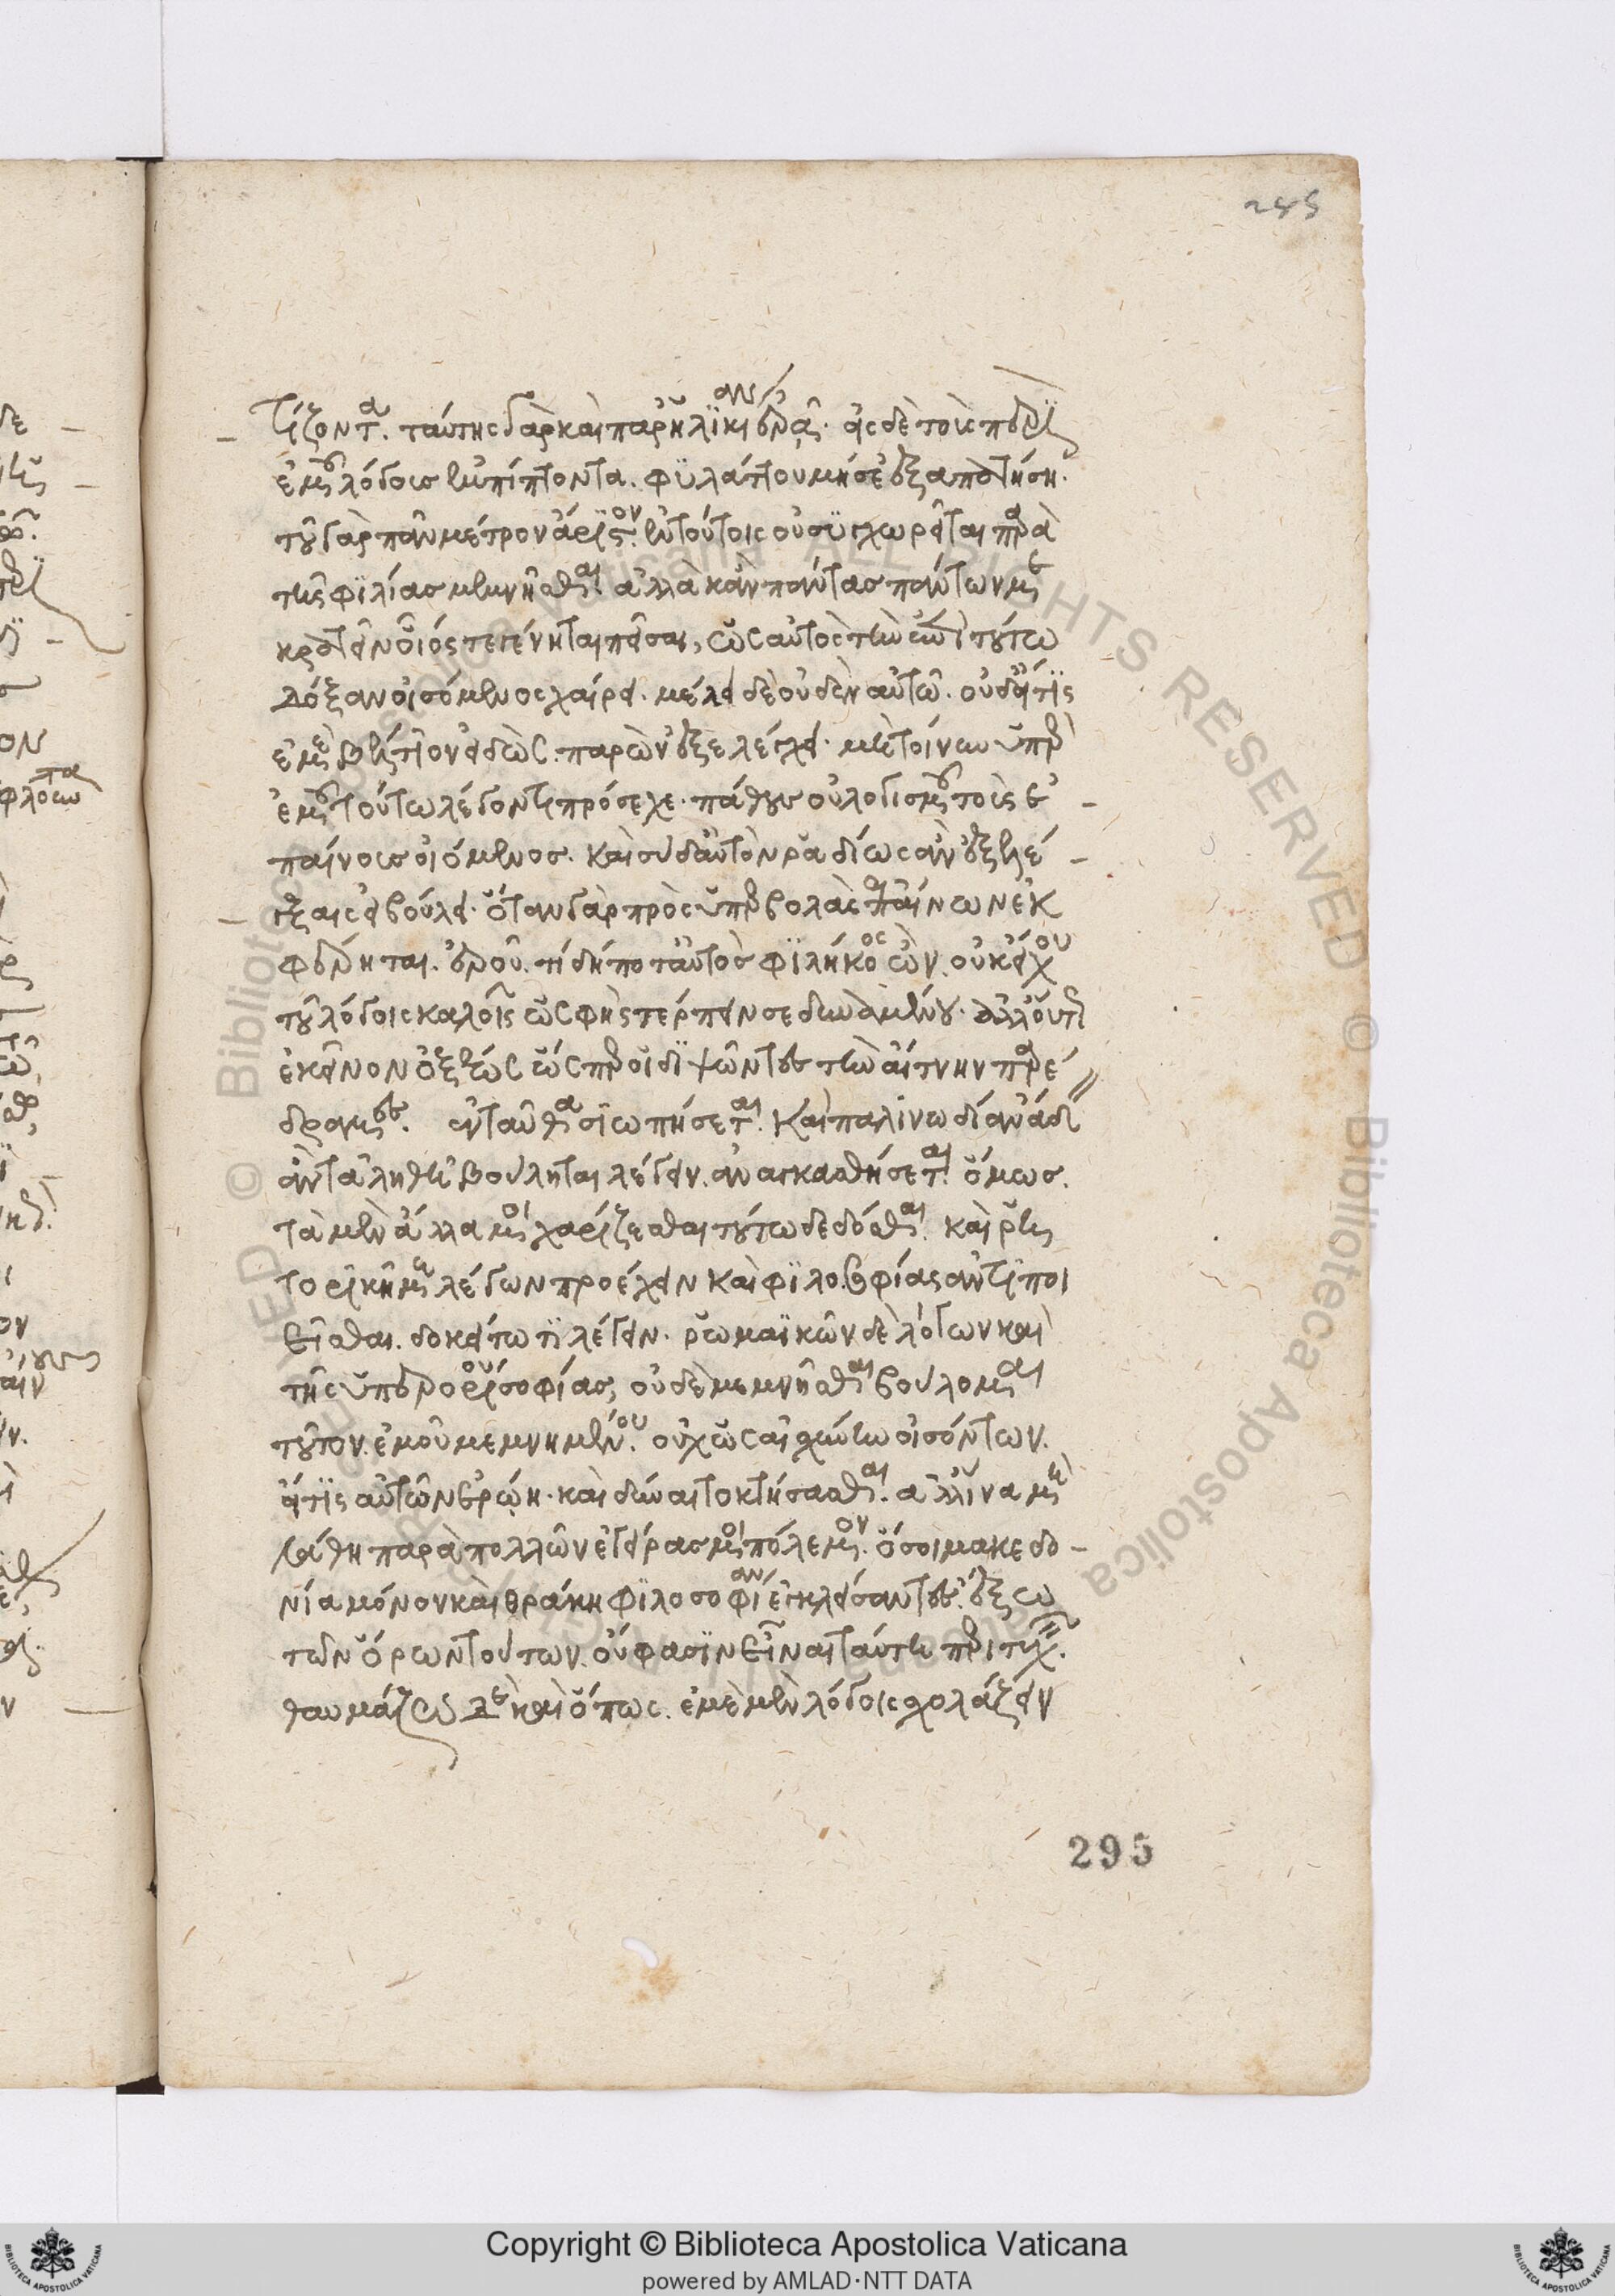 245
τίζοντα. ταύτης γὰρ καὶ παρ' ἡλικίαν ἐρᾷ. εἰς δὲ τοὺς περὶ
ἐμοῦ λόγους ἐμπίπτοντα. φυλάττου μή σε ἐξαπατήσῃ.
τοῦ γὰρ πᾶν μέτρον ἄριστον. ἐν τούτοις οὐ συγχωρεῖται παρὰ
τῆς φιλίας μεμνῆσθαι. ἀλλὰ κἂν πάντας πάντων με
κρατεῖν οἷός τε γένηται πεῖσαι, ὡς αὐτὸς τὴν ἐπὶ τούτω
δόξαν οἰσόμενος χαίρει. μέλει δὲ οὐδὲν αὐτῶ. οὐδ' εἴ τις
ἐμὲ βέλτιον εἰδὼς. παρὼν ἐξελέγχει. μὴ τοίνυν ὑπὲρ
ἐμοῦ τούτω λέγοντι πρόσεχε. πάθους οὐ λογισμοῦ τοῖς ἐ-
παίνοις οἰόμενος. καὶ σὺ δ' αὐτὸν ῥᾳδίως ἂν ἐξελέ-
γξαις εἰ βούλει. ὅταν γὰρ πρὸς ὑπερβολὰς ἐπαίνων ἐκ
φέρηται. ἐροῦ. τί δήποτ' αὐτὸς φιλήκοος ὢν. οὐκ ἐχου
τοῦ λόγοις καλοῖς ὥς φης τέρπειν σε δυναμένου. ἀλλ' οὐκ ἐπ'
ἐκεῖνον ὀξέως ὡς περ οἱ διψῶντες τὴν Αἴτνην παρέ
δραμες. ἐνταῦθα σιωπήσεται. καὶ παλινῳδίαν ᾄδει
ἂν τἀληθὲς βούληται λέγειν. ἀναγκασθήσεται ὅμως.
τὰ μὲν ἄλλα μοι χαρίζεσθαι τούτω δεδόσθαι. καὶ ῥη
τορικῇ με λέγων προέχειν καὶ φιλοσοφίας ἀντιποι
εῖσθαι. δοκείτω τι λέγειν. ῥωμαϊκῶν δὲ λόγων καὶ
τῆς ὑπερορίου σοφίας, οὐδὲ μεμνῆσθαι βούλομαι
τοῦτον. ἐμοῦ μεμνημένου. οὐχ ὡς αἰσχύνην οἰσόντων.
εἴ τις αὐτῶν ἐρῴη. καὶ δύναιτο κτήσασθαι. ἀλλ' ἵνα μὴ
λάθῃ παρὰ πολλῶν ἐγείρας μοι πόλεμον. ὅσοι μακεδο-
νία μόνον καὶ θράκῃ φιλοσοφίαν ἐγκλείσαντες. ἔξω
τῶν ὅρων τούτων. οὔ φασιν εἶναι ταύτῃ περιτυχεῖν.
θαυμάζω δὲ καὶ ὅπως. ἐμὲ μὲν λόγοις σχολάζειν
295
Copyright © Biblioteca Apostolica Vaticana
powered by AMLAD·NTT DATA